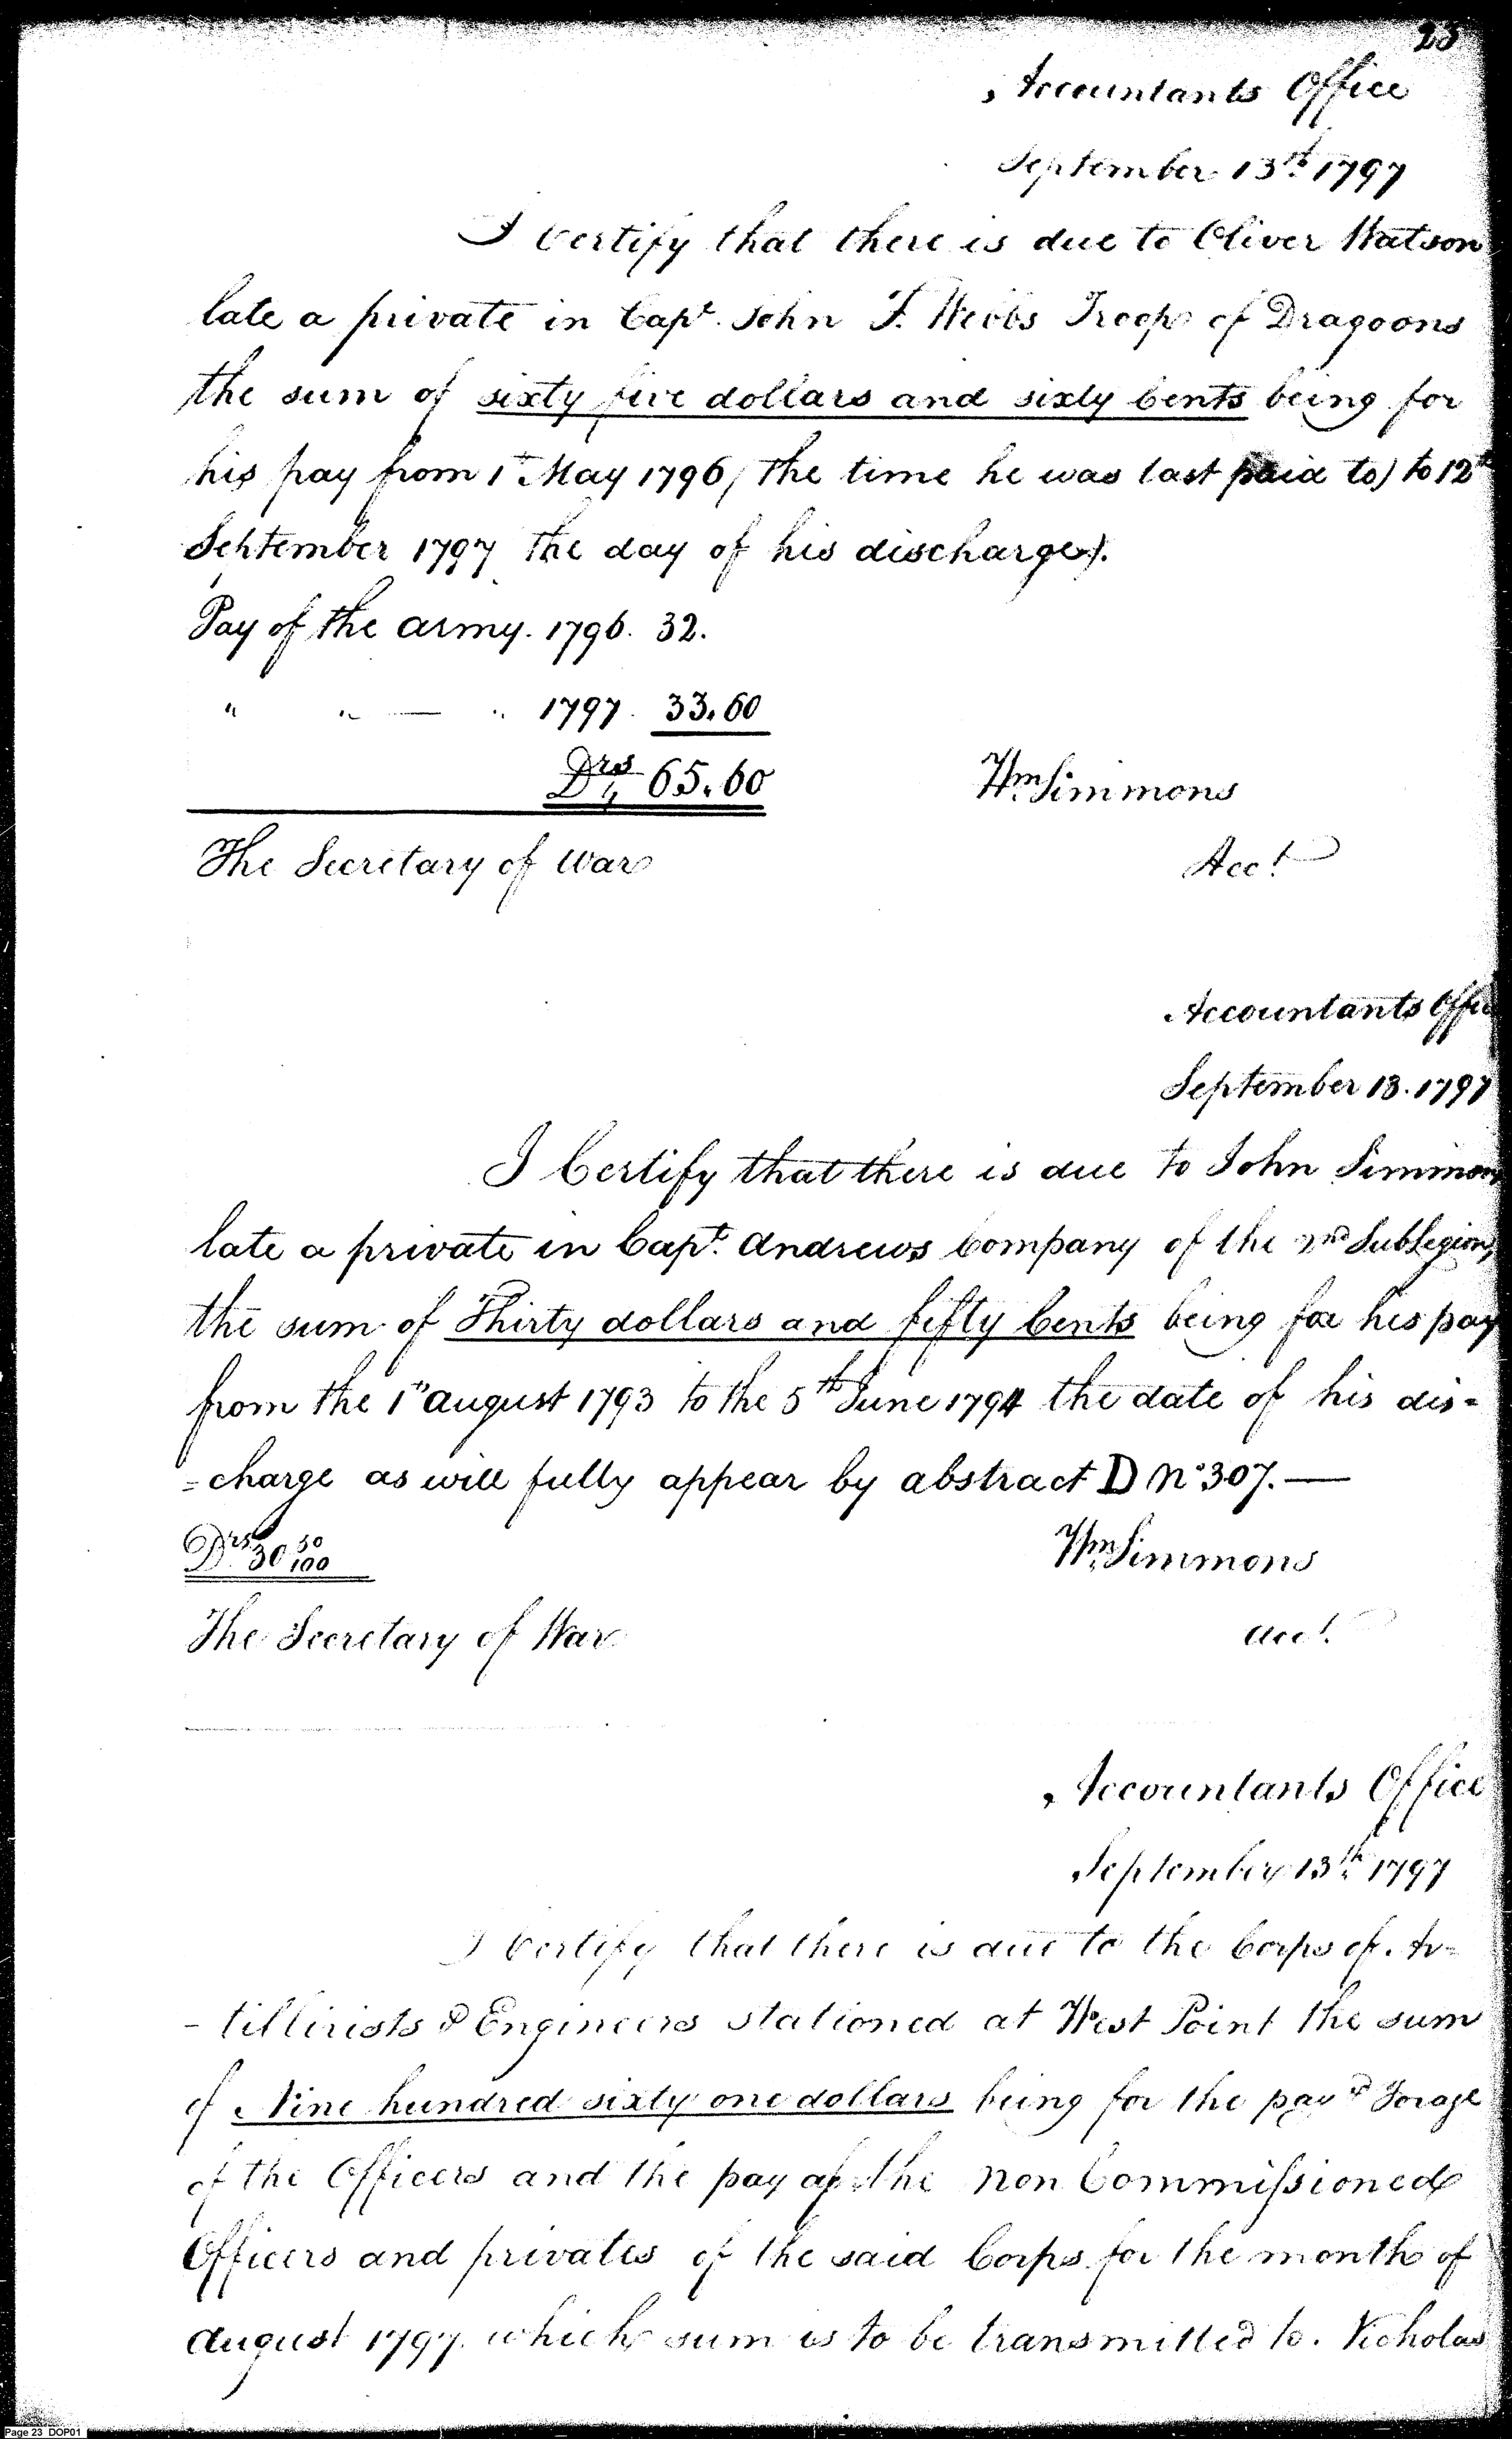 23
Accountants Office
September 13th 1797
I Certify that there is due to Oliver Watson
late a private in Capt. John F. Webbs Troop of Dragoons
the sum of sixty five dollars and sixty Cents being for
his pay from 1st May 1796 (the time he was last paid to) to 12th
September 1797 the day of his discharge).
Pay of the army. 1796. 32.
" " — " 1797. 33.60
Drs 65.60
Wm. Simmons
The Secretary of War
Acct.
Accountants Offic
September 13. 1797
I Certify that there is due to John Simmons
late a private in Capt. Andrews Company of the 2nd SubLegion,
the sum of Thirty dollars and fifty Cents being for his pay
from the 1st august 1793 to the 5th June 1794 the date of his dis=
=charge as will fully appear by abstract D No 307.—
Drs 30 50/100
Wm. Simmons
The Secretary of War
acct.
Accountants Office
September 13th 1797
I Certify that there is due to the Corps of Ar=
-tillirists & Engineers stationed at West Point the sum
of Nine hundred sixty one dollars being for the pay & Forage
of the Officers and the pay of the non Commissioned
Officers and privates of the said Corps for the month of
august 1797. which sum is to be transmitted to. Nicholas
Page 23 DOP01